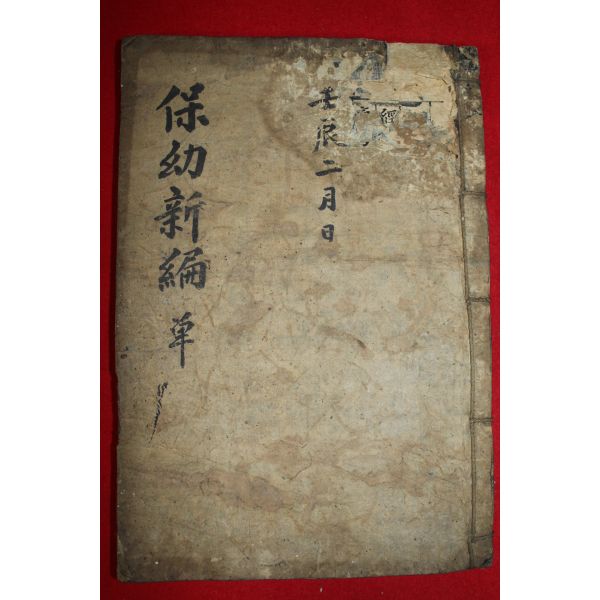 壬辰二月日
保幼新編 單